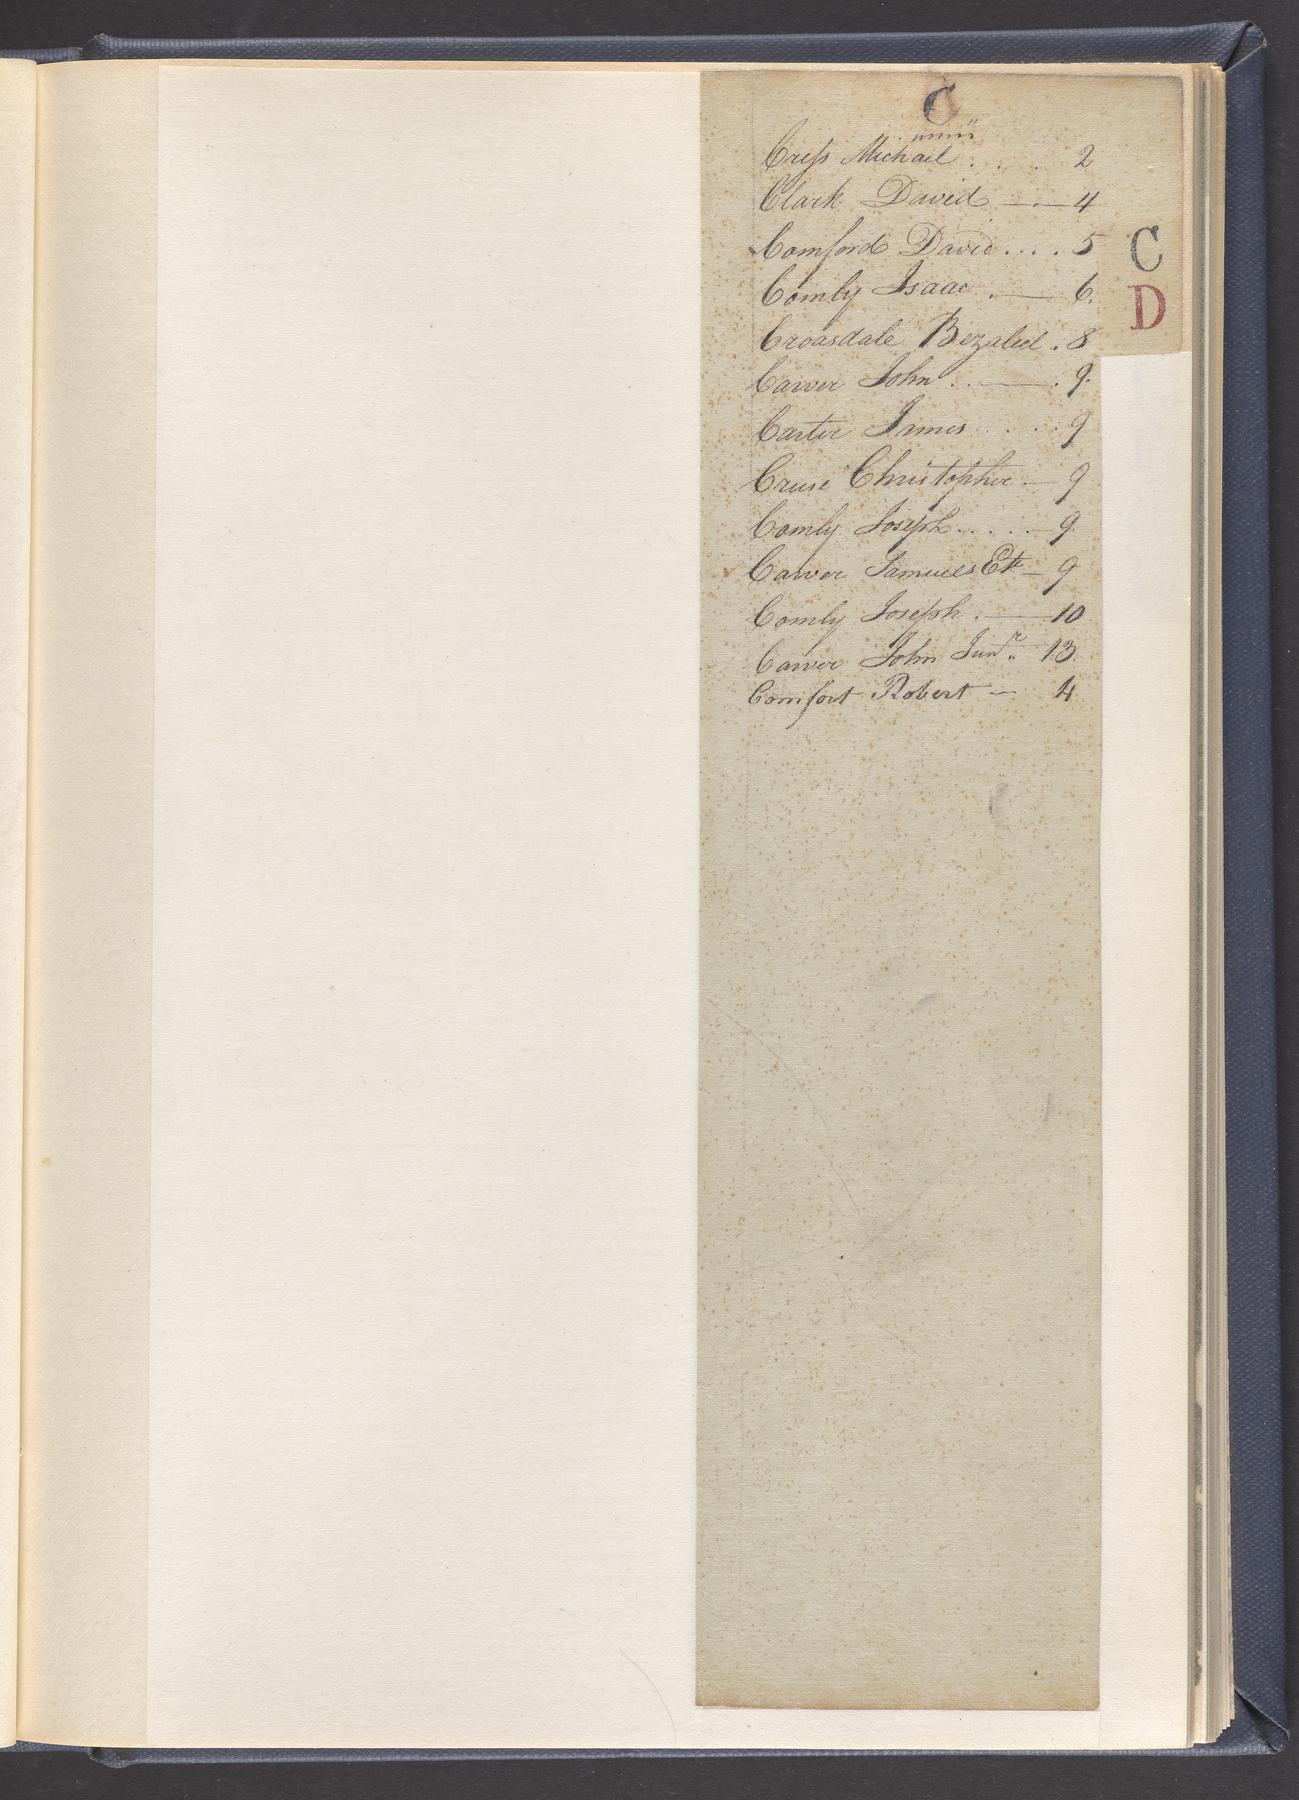 C
Cress Michael .... 2
Clark David —.— 4
Comford David .... 5
Comly Isaac .— 6.
Croasdale Bezaled . 8
Carver John ..— . 9.
Carter James .... 9
Cruse Christopher — 9
Comly Joseph .....— 9.
Carver Samuels Et — 9
Comly Joseph .— 10
Carver John Junr. 13.
Comfort Robert — 4
C
D